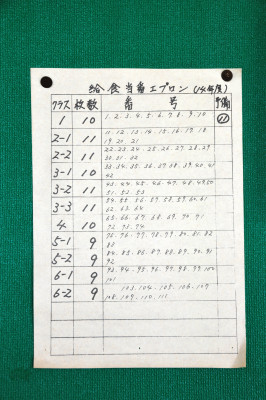 給食当番エプロン(14年度)
クラス 枚数 番号 予備
1 10 1.2.3.4.5.6.7.8.9.10
2-1 11 11.12.13.14.15.16.17.18
19.20.21
2-2 11 22.23.24.25.26.27.28.29
30.31.32
3-1 10 33.34.35.36.37.38.39.40.41
42
3-2 11 43.44.45.46.47.48.49.50
51.52.53
3-3 11 54.55.56.57.58.59.60.61
62.63.64
4 10 65.66.67.68.69.70.71
72.73.74
5-1 9 75.76.77.78.79.80.81.82
83
5-2 9 84.85.86.87.88.89.90.91
92
6-1 9 93.94.95.96.97.98.99.100
101
6-2 9 103.104.105.106.107
108.109.110.111